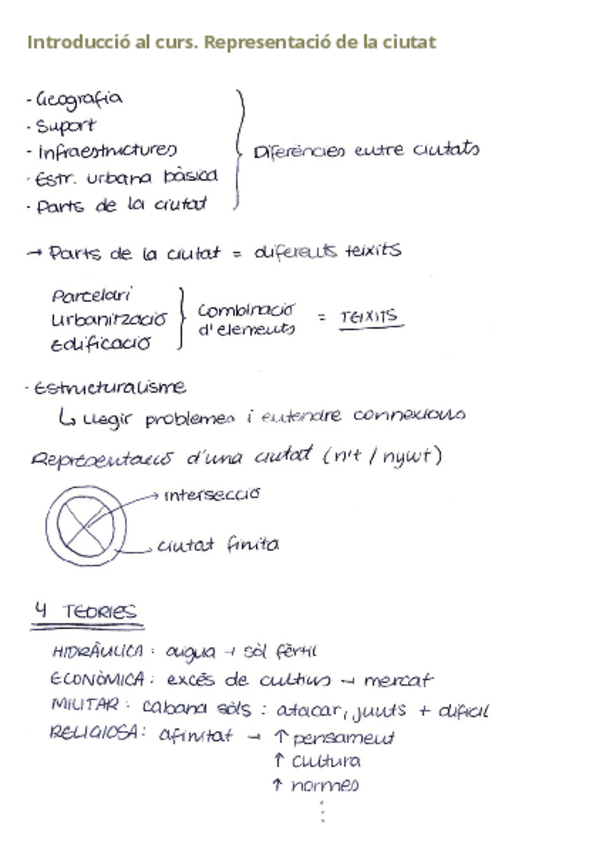 Introducció al curs. Representació de la ciutat
- Geografia
- Suport
- Infraestructures
- Estr. urbana bàsica
- Parts de la ciutat
Diferències entre ciutats
→ Parts de la ciutat = diferents teixits
Parcelari
Urbanització
Edificació
Combinació
d'elements
= TEIXITS
- Estructuralisme
↳ Llegir problemes i entendre connexions
Representació d'una ciutat (n't / nywt)
→ intersecció
ciutat finita
4 TEORIES
HIDRÀULICA: aigua → sòl fèrtil
ECONÒMICA: excés de cultius → mercat
MILITAR: cabana sòls: atacar, junts + difícil
RELIGIOSA: afinitat → ↑ pensament
↑ cultura
↑ normes
⋮